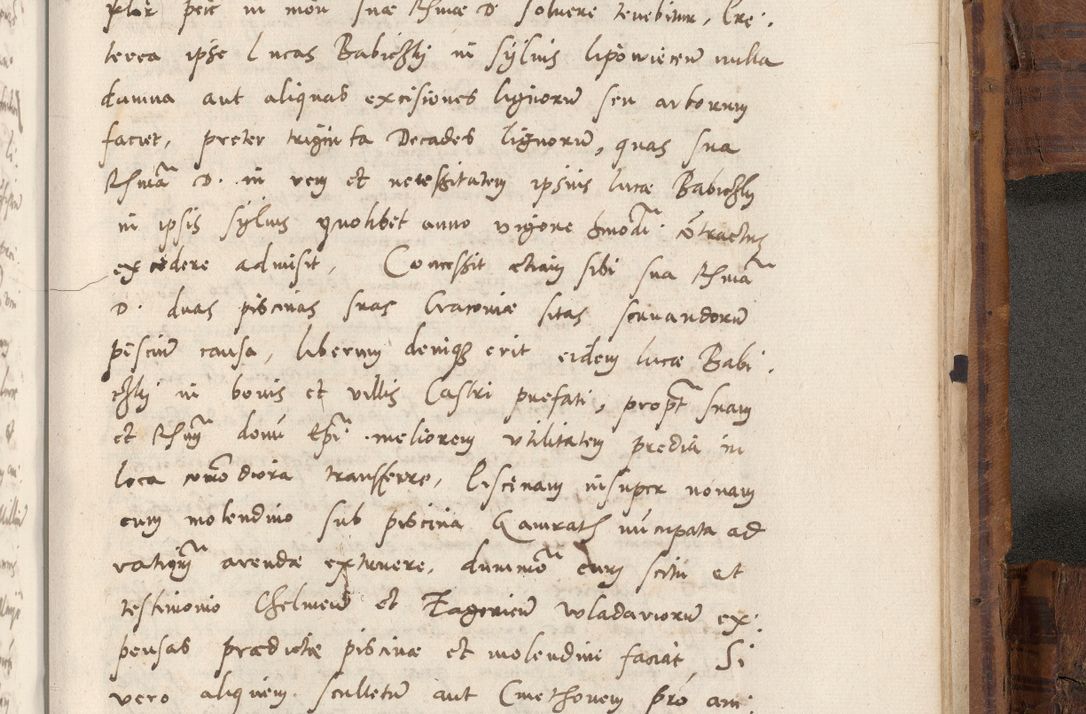 in mon suæ Rhmæ D. solvere tenebitur, Pre:
terea ipse Lucas Babiczky in sylvis lipowiecen nulla
damna aut aliquas excisiones lignorum seu arborum
faciet, preter triginta Decades lignorum, quas sua
Rhma D. in rem et necessitatem ipsius Lucæ Babiczky
in ipsis sylvis quolibet anno vigore hmodi contractus
excedere admisit, Concessit etiam sibi sua Rhma
D. duas piscinas suas Cracoviæ sitas servandorum
pescium causa, liberum denique erit eidem Lucæ Babi:
czky in bonis et villis Castri prefati, propt suam
et Rhmi domi Epi meliorem utilitatem predia in
loca comodiora transferre, Piscinam insuper novam
cum molendino sub piscina Gamrath nuncupata ad
rationem arendæ extruere, dummo cum scitu et
testimonio Chelmen et Zagorien wladariorum ex:
pensas prædictæ piscinæ et molendini faciat, Si
vero aliquem scultetum aut Cmethonem pro ani